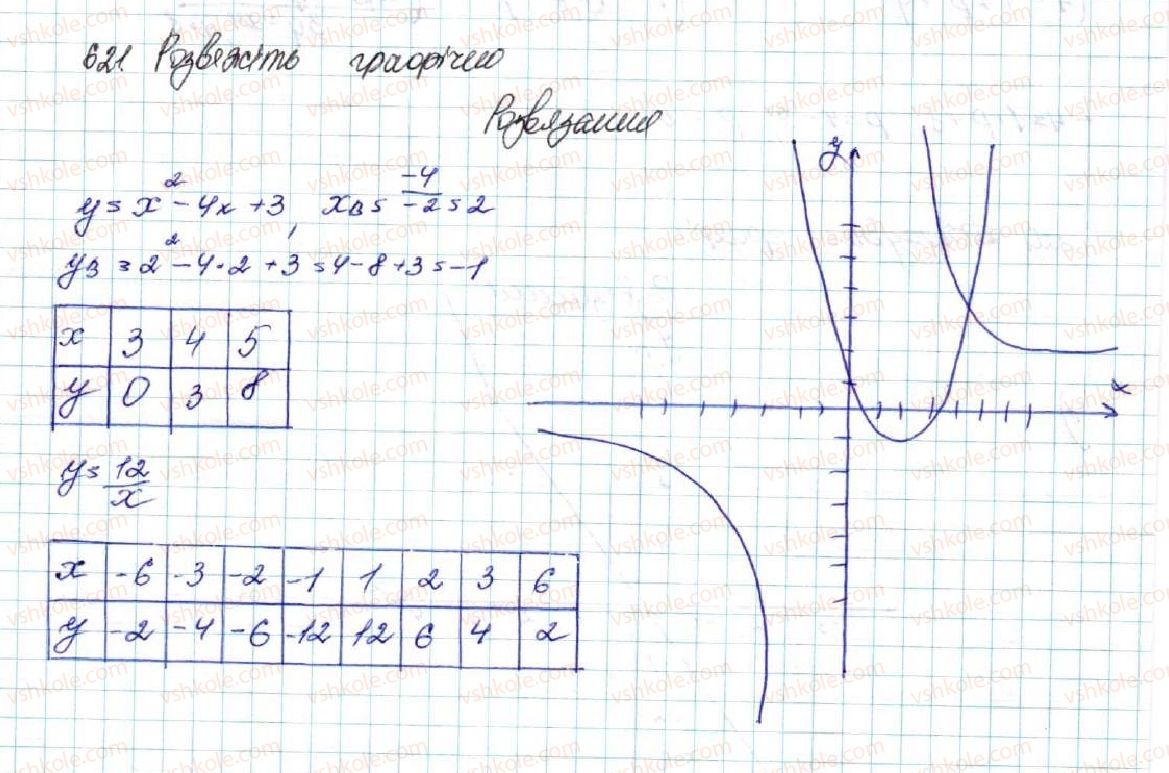 621 Розвяжіть графічно
Розвязання
y = x² - 4x + 3, xв = -4/-2 = 2
yв = 2² - 4·2 + 3 = 4 - 8 + 3 = -1
x 3 4 5
y 0 3 8
y = 12/x
x -6 -3 -2 -1 1 2 3 6
y -2 -4 -6 -12 12 6 4 2
y
x
vshkole.com